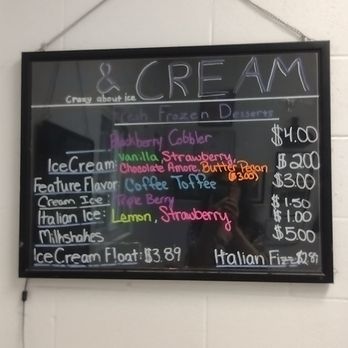 & CREAM
Crazy about ice
Fresh Frozen Desserts
Blackberry Cobbler $4.00
Ice Cream: Vanilla, Strawberry, $2.00
Chocolate Amore, Butter Pecan
($3.00)
Feature Flavor Coffee Toffee $3.00
Cream Ice: Triple Berry $1.50
Italian Ice: Lemon, Strawberry $1.00
Milkshakes $5.00
Ice Cream Float: $3.89 Italian Fizz $2.89